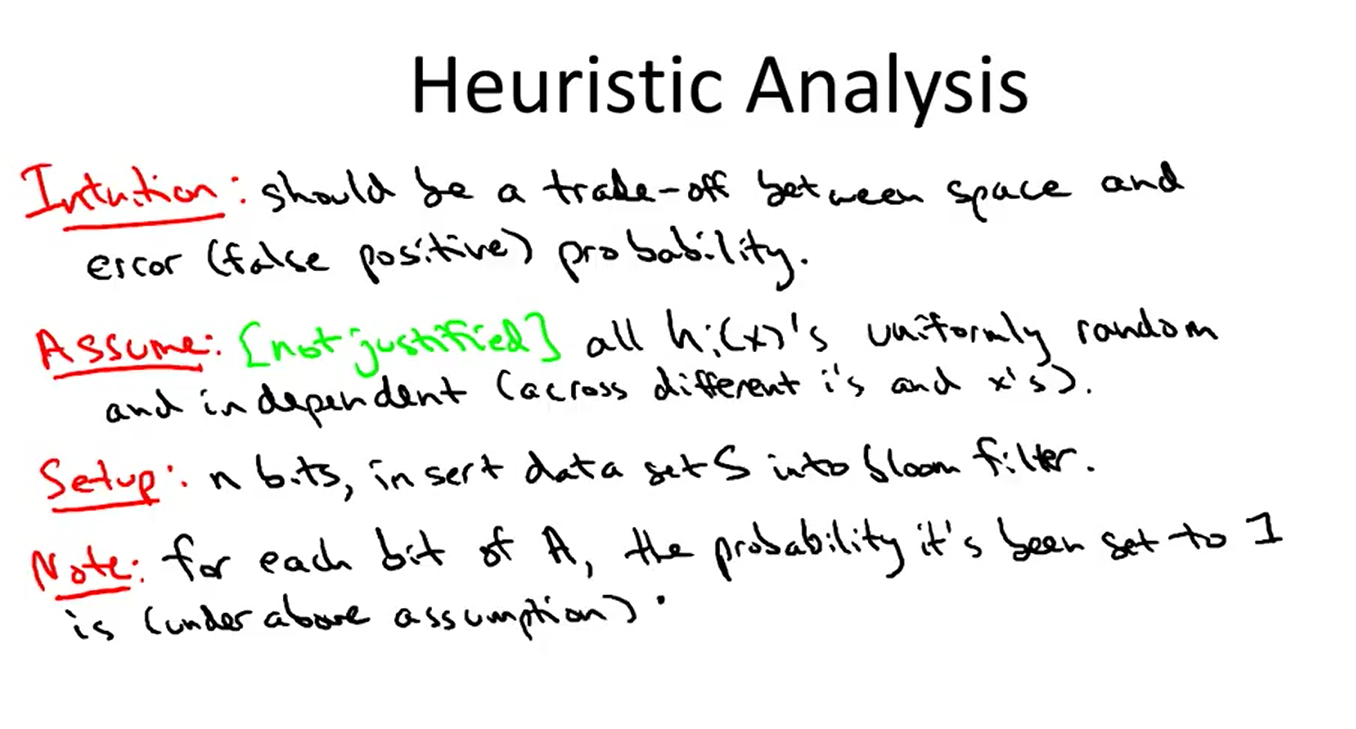 Heuristic Analysis
Intuition: should be a trade-off between space and
error (false positive) probability.
Assume: [not justified] all hi(x)'s uniformly random
and independent (across different i's and x's).
Setup: n bits, insert data set S into bloom filter.
Note: for each bit of A, the probability it's been set to 1
is (under above assumption)